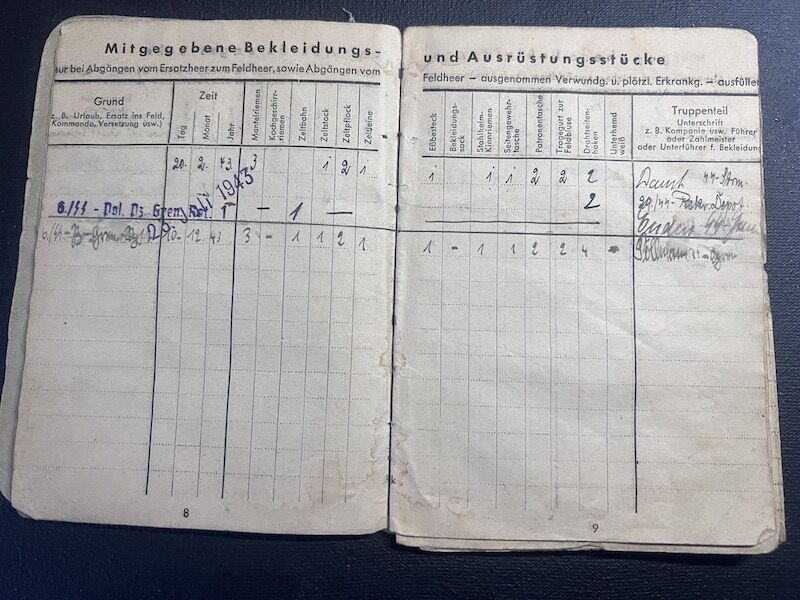 Mitgegebene Bekleidungs-
nur bei Abgängen vom Ersatzheer zum Feldheer, sowie Abgängen vom
Grund
z. B. Urlaub, Ersatz ins Feld,
Kommando, Versetzung usw.)
Zeit
Tag
Monat
Jahr
Mantelriemen
Kochgeschirr-
riemen
Zeltbahn
Zeltstock
Zeltpflock
Zeltleine
20. 2. 43. 3 1 2 1
29. Juli 1943
6./SS - Pol. Pz. Gren. 1 - 1 -
10. 12. 43 3 - 1 1 2 1
8
und Ausrüstungsstücke
Feldheer — ausgenommen Verwundg. u. plötzl. Erkrankg. — ausfüllen
Eßbesteck
Bekleidungs-
sack
Stahlhelm-
Kinnriemen
Seitengewehr-
tasche
Patronentasche
Tragegurt zur
Feldbluse
Drahtseiten-
haken
Unterhemd
weiß
Truppenteil
Unterschrift
z. B. Kompanie usw. Führer
oder Zahlmeister
oder Unterführer f. Bekleidung
1 1 1 2 2 2
2
1 - 1 1 2 2 4 -
9